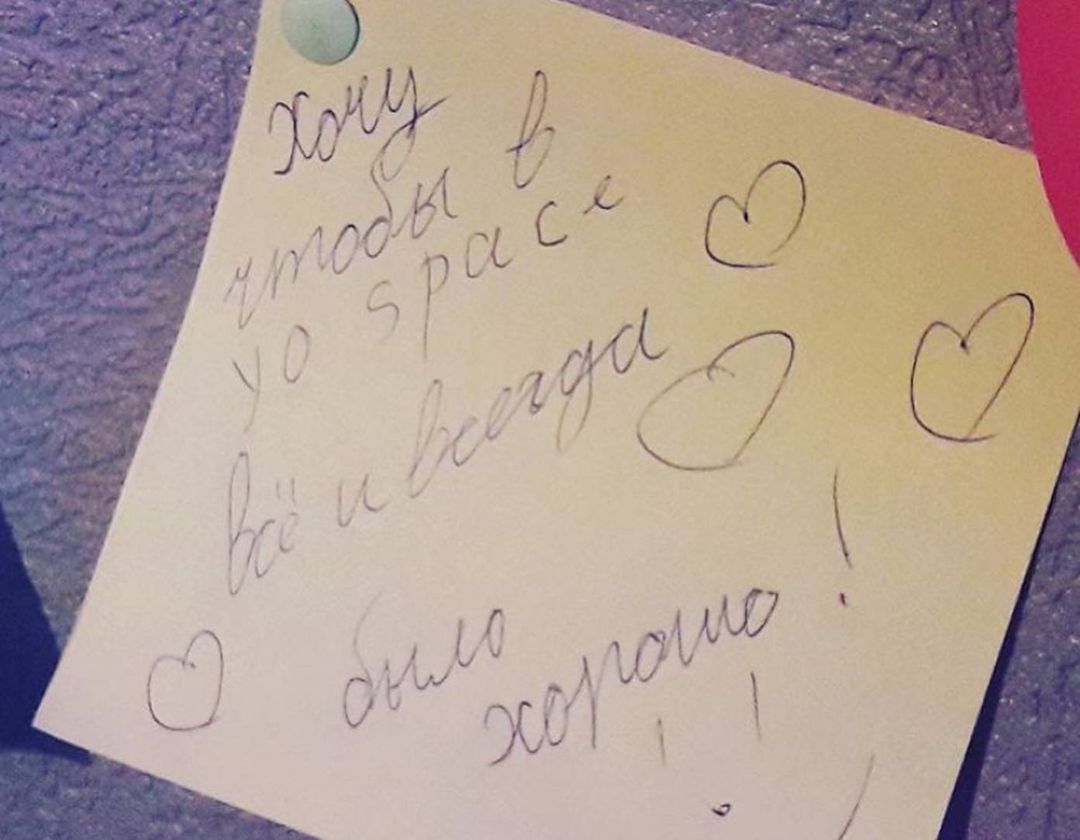 Хочу
чтобы в
yo space
всё и всегда
было
хорошо!